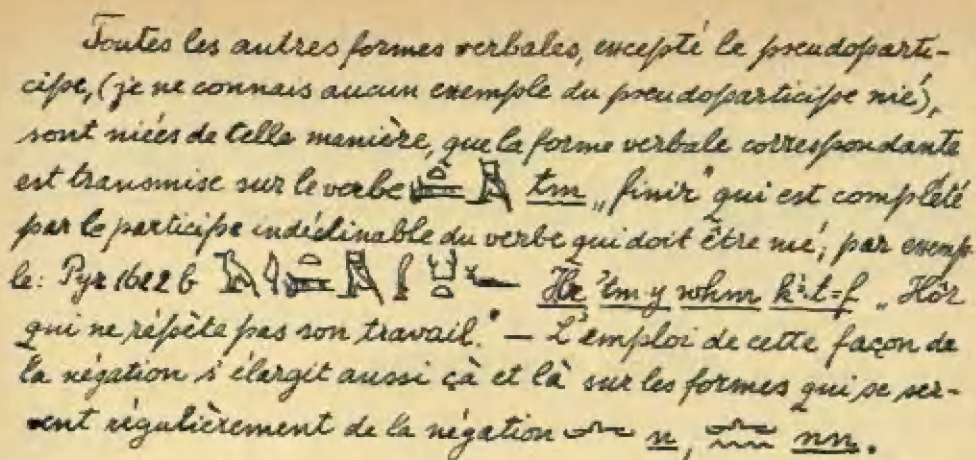 Toutes les autres formes verbales, excepté le pseudoparti-
cipe, (je ne connais aucun exemple du pseudoparticipe nié),
sont niées de telle manière, que la forme verbale correspondante
est transmise sur le verbe tm „finir" qui est complété
par le participe indéclinable du verbe qui doit être nié; par exemp-
le: Pyr 1622 b Ḥr tm y wḥm k't=f „Hôr
qui ne répète pas son travail." — L'emploi de cette façon de
la négation s'élargit aussi çà et là sur les formes qui se ser-
vent régulièrement de la négation n, nn.